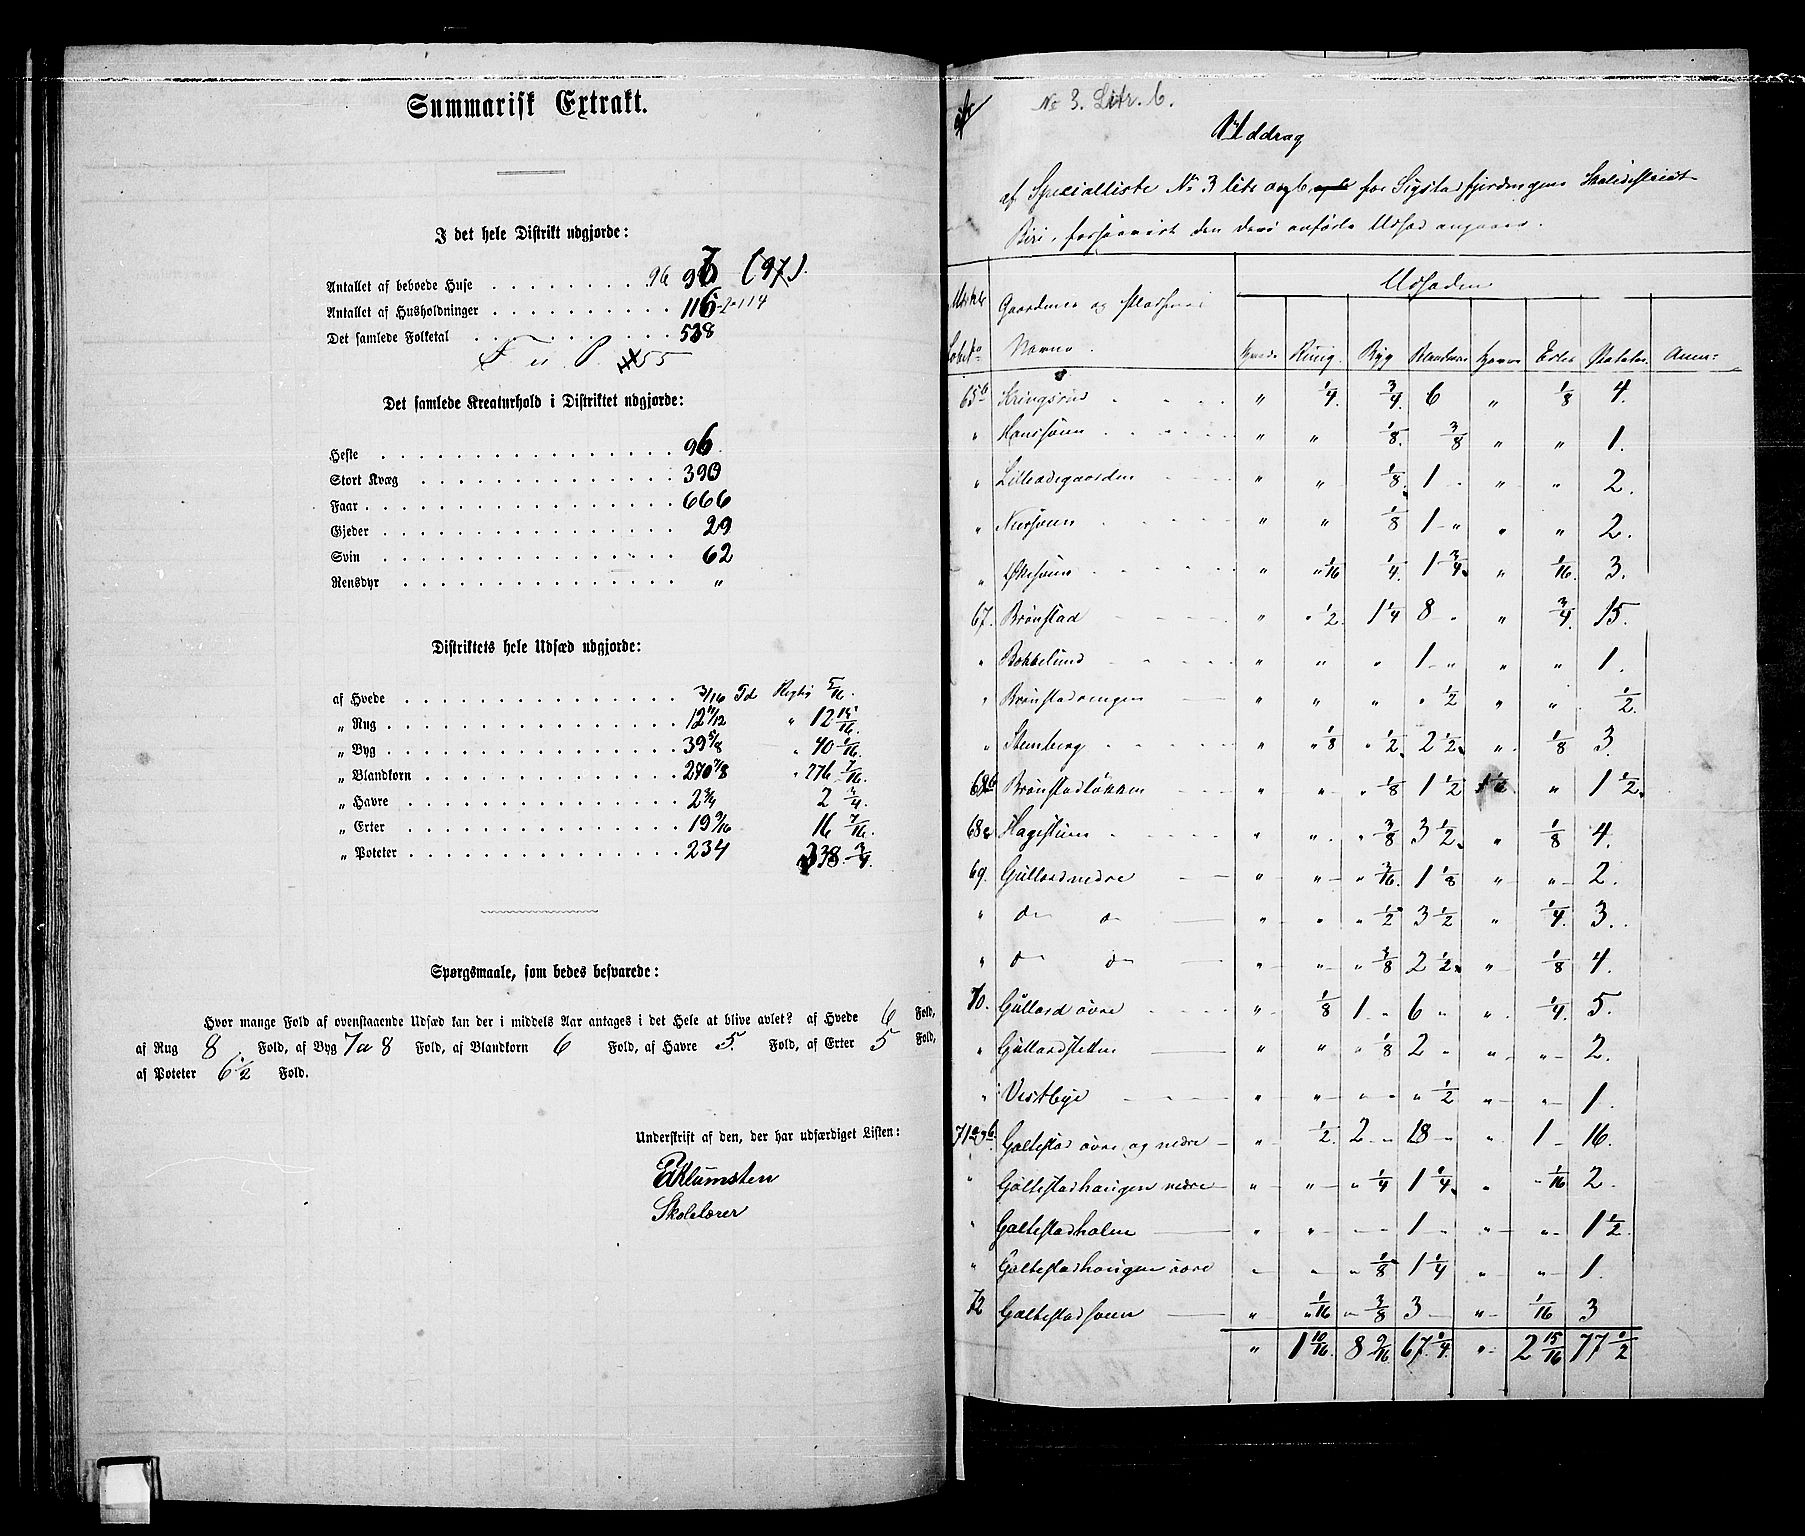 Summarisk Extrakt.
I det hele Distrikt udgjorde:
Antallet af beboede Huse . . . . . . . . 96 97 (97).
Antallet af Husholdninger . . . . . . . . . . 116-2=114
Det samlede Folketal . . . . . . . . . . 538
Det samlede Kreaturhold i Distriktet udgjorde:
Heste . . . . . . . . . . . . . . . 96
Stort Kvæg . . . . . . . . . . . . . 390
Faar . . . . . . . . . . . . . . . . 666
Gjeder . . . . . . . . . . . . . . . 29
Svin . . . . . . . . . . . . . . . . 62
Rensdyr . . . . . . . . . . . . . . "
Distriktets hele Udsæd udgjorde:
af Hvede . . . . . . . . . . . . . 3/16 Td 5/16.
" Rug . . . . . . . . . . . . . . 12 11/12 " 12 15/16
" Byg . . . . . . . . . . . . . . 39 5/8 " 40 1/16.
" Blandkorn . . . . . . . . . . . 270 7/8 " 276 7/16.
" Havre . . . . . . . . . . . . . 2 3/4 2 3/4.
" Erter . . . . . . . . . . . . . 19 9/16 16 7/16.
" Poteter . . . . . . . . . . . . 234 338 3/4.
Spørgsmaale, som bedes besvarede:
Hvor mange Fold af ovenstaaende Udsæd kan der i middels Aar antages i det Hele at blive avlet? af Hvede 6 Fold,
af Rug 8. Fold, af Byg 7 a 8 Fold, af Blandkorn 6 Fold, af Havre 5. Fold, af Erter 5 Fold,
af Poteter 6 1/2 Fold.
Underskrift af den, der har udfærdiget Listen:
Skolelærer
No 3. Litr. b.
Uddrag
af Specialliste No 3 litr a og b for Sigstadfjerdingens Skoledistrikt
Biri, forsaavidt den deri anførte Udsæd angaaer.
Matr. Løbe No Gaardenes og Pladsenes Navne. Udsæden
Hvede Rug. Byg Blandkorn Havre Erter Poteter Anm:
65b Kringsrud . . . . " 1/4. 3/4. 6 " 1/8 4.
" Hanssveen . . . . " " 1/8. 3/8 " " 1.
" Lilleødegaarden " " 1/8. 1 " " 2.
" Nersveen . . . . " " 1/8 1 " " " 2.
" Økesveen . . . . " " 1/16 1/4. 1 3/4. " 1/16. 3.
67. Brønstad " " 1/2. 1 1/4 8 " " 3/4. 15.
" Bokkelund " " " 1 " " " 1.
" Brønstadvengen " " " " 1/2 " " 1/2.
" Stenberg . . . . " " 1/8 " 1/2. 2 1/2. " 1/8 3
68b Brønstadløkken " " " 1/8 1 1/2 1 1/2 " 1 1/2.
68a Hagestuen " " " 3/8 3 1/2. " 1/8 4.
69. Gullord nedre " " " 3/16. 1 1/8 " " 2.
" do do " " " 1/2 3 1/2 " 1/4. 3.
" do do " " " 3/8 2 1/2. " 1/8 4.
70. Gullord øvre " 1/8 1 " 6 " " 1/4. 5.
" Gullordstetten " " " 1/8 2 " " " 2.
" Vestbye " " " " " 1/2 " " 1.
71a og b. Galtestad øvre og nedre " 1/2. 2 " 18 " " 1 16.
" Galtestadhaugen nedre " " " 1/4 1 1/4. " " 1/16 2.
" Galtestadholen " " " 1 " " " 1 1/2.
" Galtestadhaugen øvre " " " 1/8 1 1/4 " " 1.
72 Galtestadsveen " " 1/16 " 3/8 3 " 1/16 3
" 1 10/16. 8 9/16 67 1/4. " 2 15/16 77 1/2